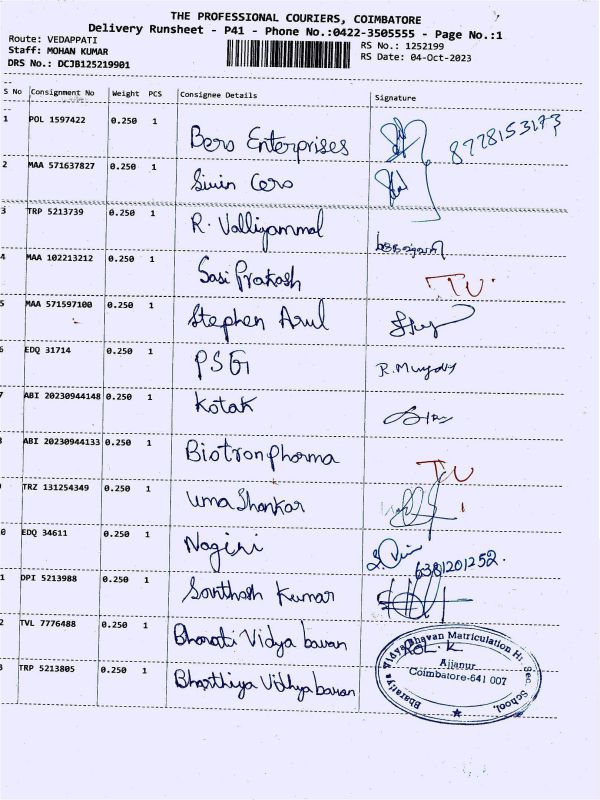 THE PROFESSIONAL COURIERS, COIMBATORE
Delivery Runsheet - P41 - Phone No.:0422-3505555 - Page No.:1
Route: VEDAPPATI
RS No.: 1252199
Staff: MOHAN KUMAR
RS Date: 04-Oct-2023
DRS No.: DCJB125219901
S No Consignment No Weight PCS Consignee Details Signature
1 POL 1597422 0.250 1 Bero Enterprises 8778153173
2 MAA 571637827 0.250 1 Sivin Cero
3 TRP 5213739 0.250 1 R. Valliyammal
4 MAA 102213212 0.250 1 Sasi Prakash TU
5 MAA 571597100 0.250 1 Stephen Arul
6 EDQ 31714 0.250 1 PSG
7 ABI 20230944148 0.250 1 Kotak
8 ABI 20230944133 0.250 1 Biotronpharma TU
TRZ 131254349 0.250 1 Uma Shankar
0 EDQ 34611 0.250 1 Nagini 6381201252.
1 DPI 5213988 0.250 1 Santhosh Kumar
2 TVL 7776488 0.250 1 Bharati Vidya bavan
3 TRP 5213805 0.250 1 Bharthiya Vidhya bavan
Bharatiya Vidya Bhavan Matriculation Hr. Sec. School,
Ajjanur
Coimbatore-641 007